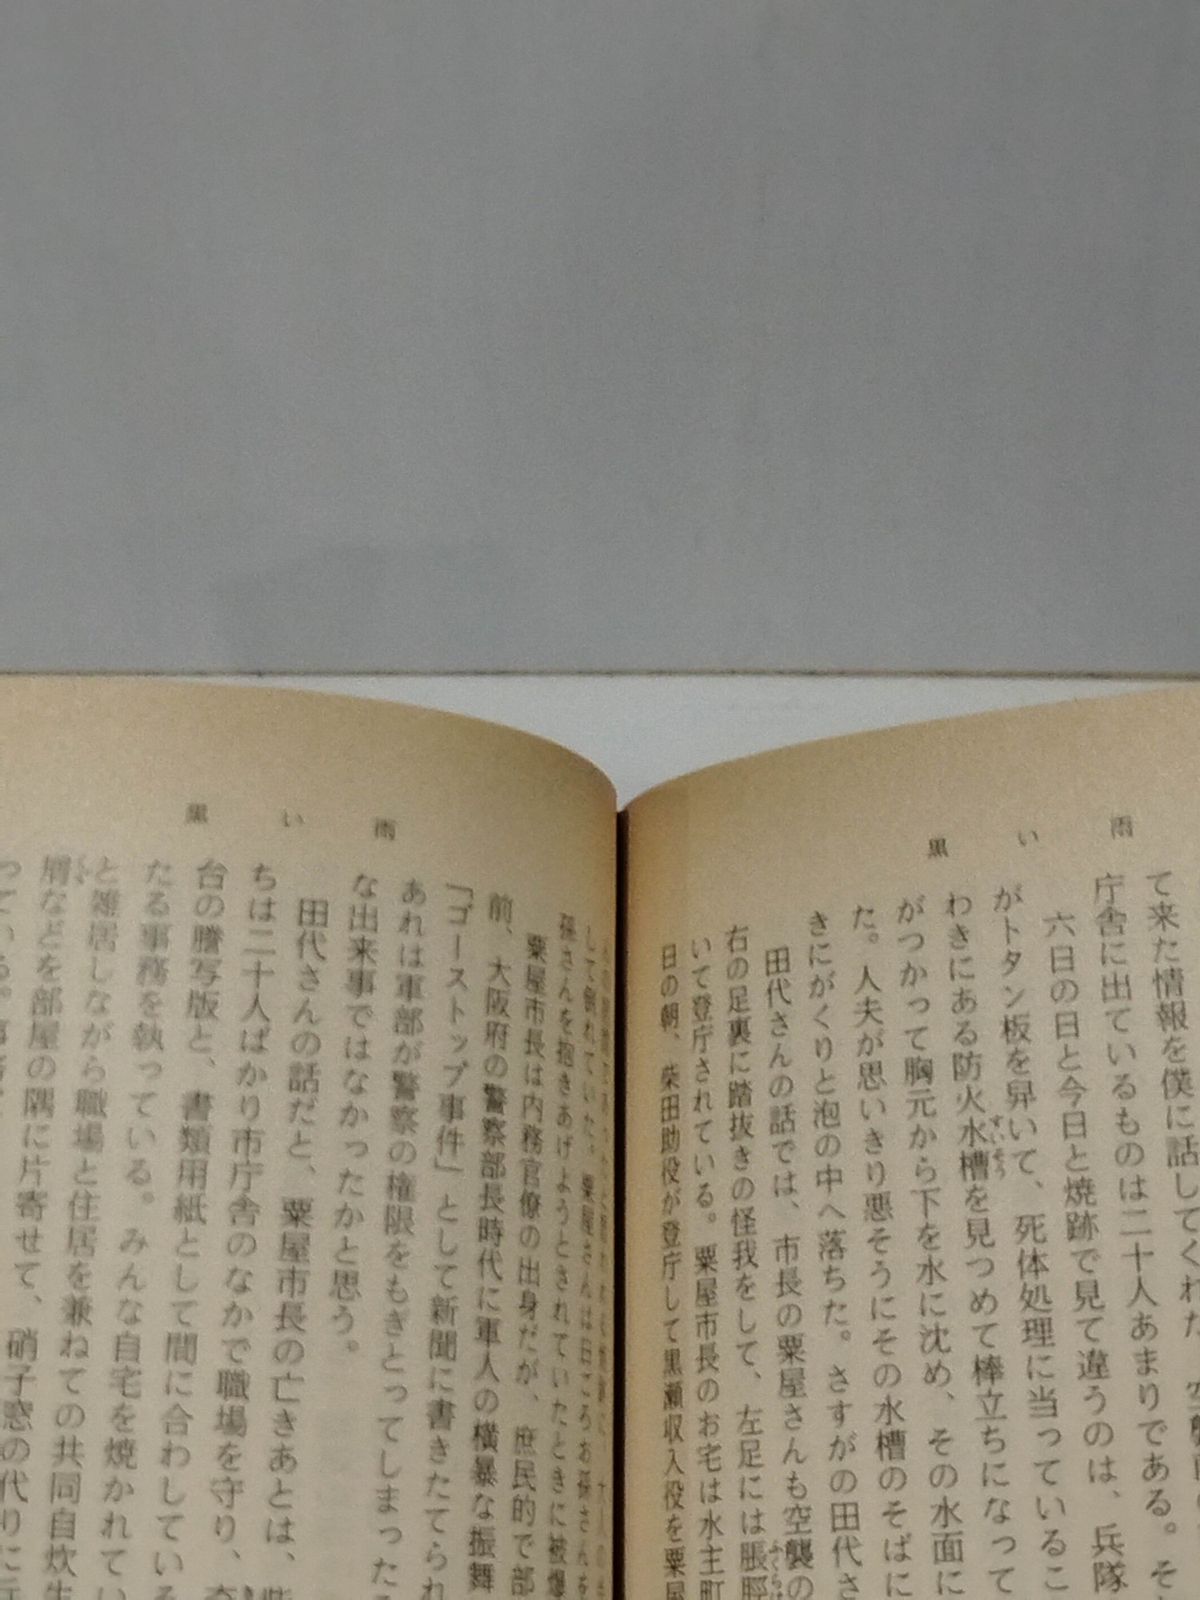 黒い雨
て来た情報を僕に話してくれた。
庁舎に出ているものは二十人あまりである。そ
六日の日と今日と焼跡で見て違うのは、兵隊
がトタン板を舁いて、死体処理に当っているこ
わきにある防火水槽を見つめて棒立ちになって
がつかって胸元から下を水に沈め、その水面に
た。人夫が思いきり悪そうにその水槽のそばに
きにがくりと泡の中へ落ちた。さすがの田代さ
田代さんの話では、市長の粟屋さんも空襲の
右の足裏に踏抜きの怪我をして、左足には脹脛
いて登庁されている。粟屋市長のお宅は水主町
日の朝、柴田助役が登庁して黒瀬収入役を粟屋
黒い雨
して倒れていた。粟屋さんは日ごろお孫さんを
孫さんを抱きあげようとされていたときに被爆
粟屋市長は内務官僚の出身だが、庶民的で部
前、大阪府の警察部長時代に軍人の横暴な振舞
「ゴーストップ事件」として新聞に書きたてられ
あれは軍部が警察の権限をもぎとってしまった
な出来事ではなかったかと思う。
田代さんの話だと、粟屋市長の亡きあとは、
ちは二十人ばかり市庁舎のなかで職場を守り、
台の謄写版と、書類用紙として間に合わしている
たる事務を執っている。みんな自宅を焼かれてい
と雑居しながら職場と住居を兼ねての共同自炊生
屑などを部屋の隅に片寄せて、硝子窓の代りに